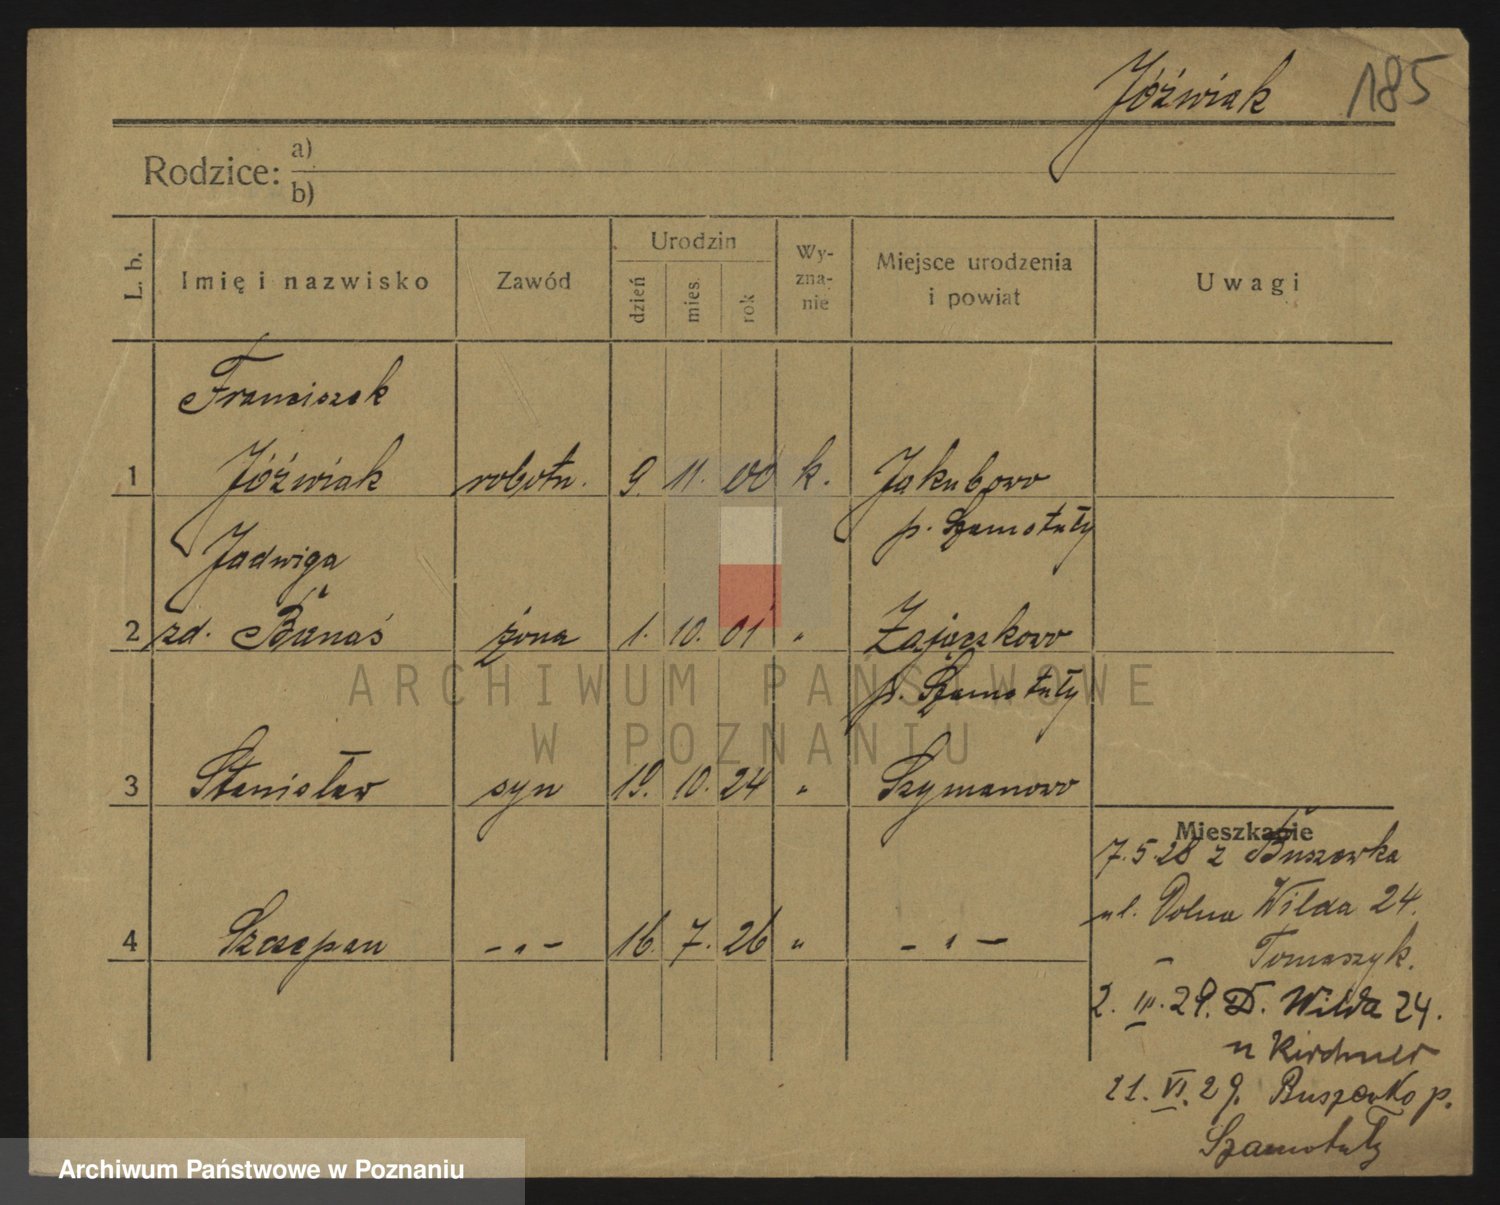 Jóźwiak 185
Rodzice: a)
b)
L. b. Imię i nazwisko Zawód Urodzin dzień mies. rok Wy-zna-nie Miejsce urodzenia i powiat Uwagi
Franciszek
1 Jóźwiak robotn. 9. 11. 00 k. Jakubowo
p. Szamotuły
Jadwiga
2 zd. Banaś żona 1. 10. 01 " Zajączkowo
p. Szamotuły
3 Stanisław syn 19. 10. 24 " Szymanowo
4 Szczepan - " - 16. 7. 26 " - " -
Mieszkanie
7.5.28 z Buszewka
ul. Dolna Wilda 24.
- Tomaszyk.
2. III. 29. D. Wilda 24.
u Kirchner
21. VI. 29. Buszewko p.
Szamotuły
ARCHIWUM PAŃSTWOWE
W POZNANIU
Archiwum Państwowe w Poznaniu